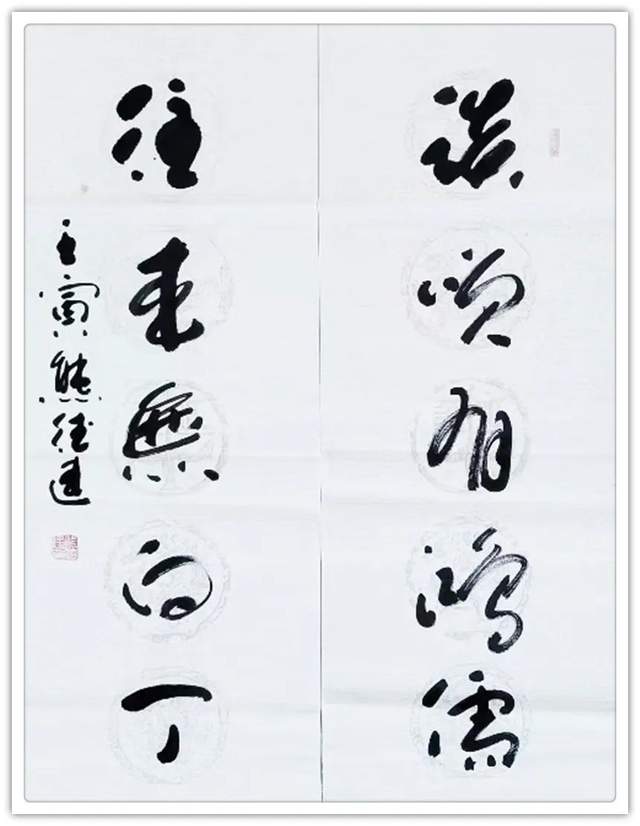 談笑有鴻儒
往来無白丁
壬寅熊德建